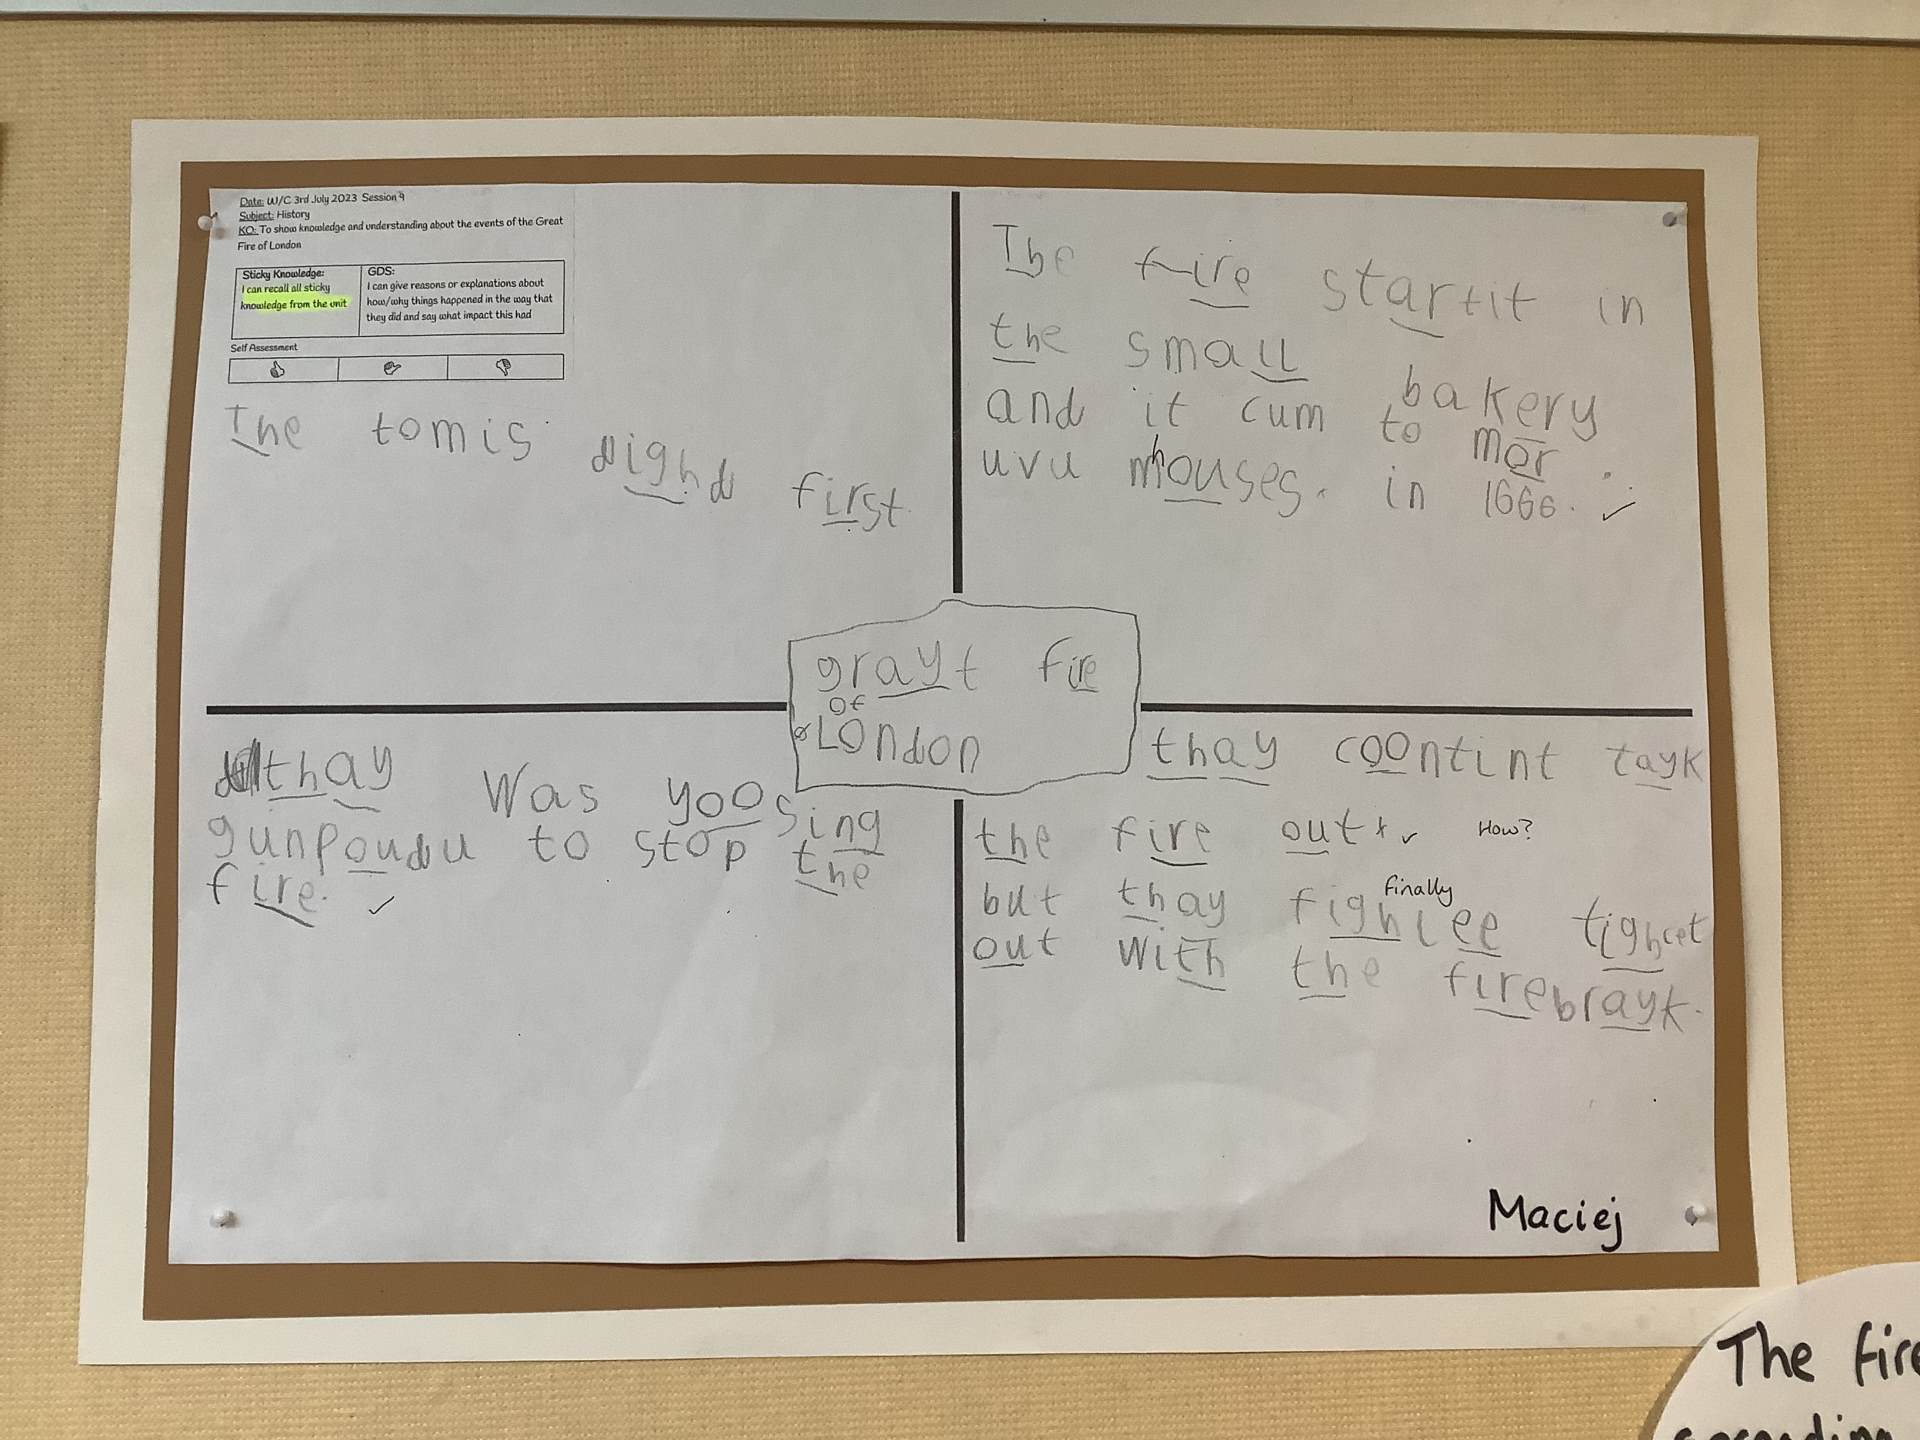 Date: W/C 3rd July 2023 Session 9
Subject: History
KO: To show knowledge and understanding about the events of the Great
Fire of London
Sticky Knowledge:
I can recall all sticky
knowledge from the unit
GDS:
I can give reasons or explanations about
how/why things happened in the way that
they did and say what impact this had
Self Assessment
The tomis dighd first.
The fire startit in
the small bakery
and it cum to mor
uvu houses. in 1666.
grayt fire
of
London
thay was yoosing
gunpoudu to stop the
fire.
thay coontint tayk
the fire out
How?
but thay fighlee tighcet
finally
out with the firebrayk.
Maciej
The fire